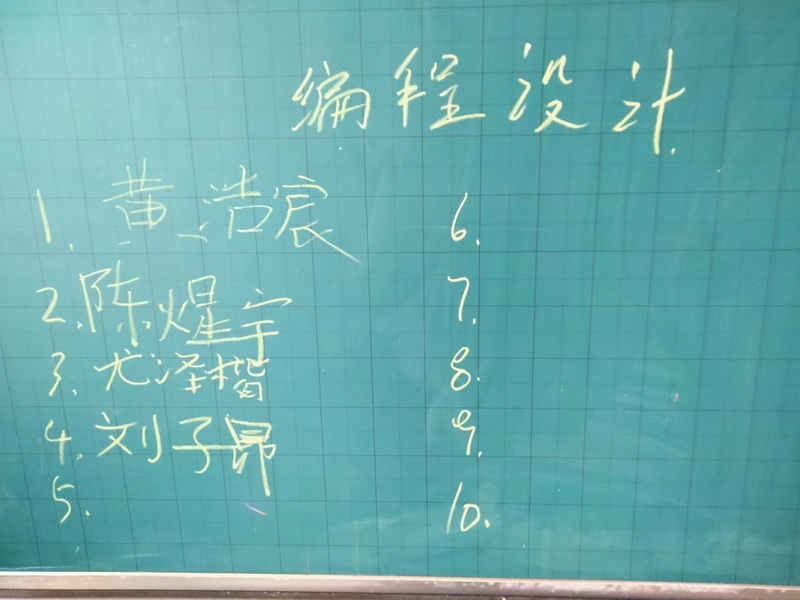 编程设计
1. 黄浩宸
2. 陈煋宇
3. 尤泽楷
4. 刘子昂
5.
6.
7.
8.
9.
10.